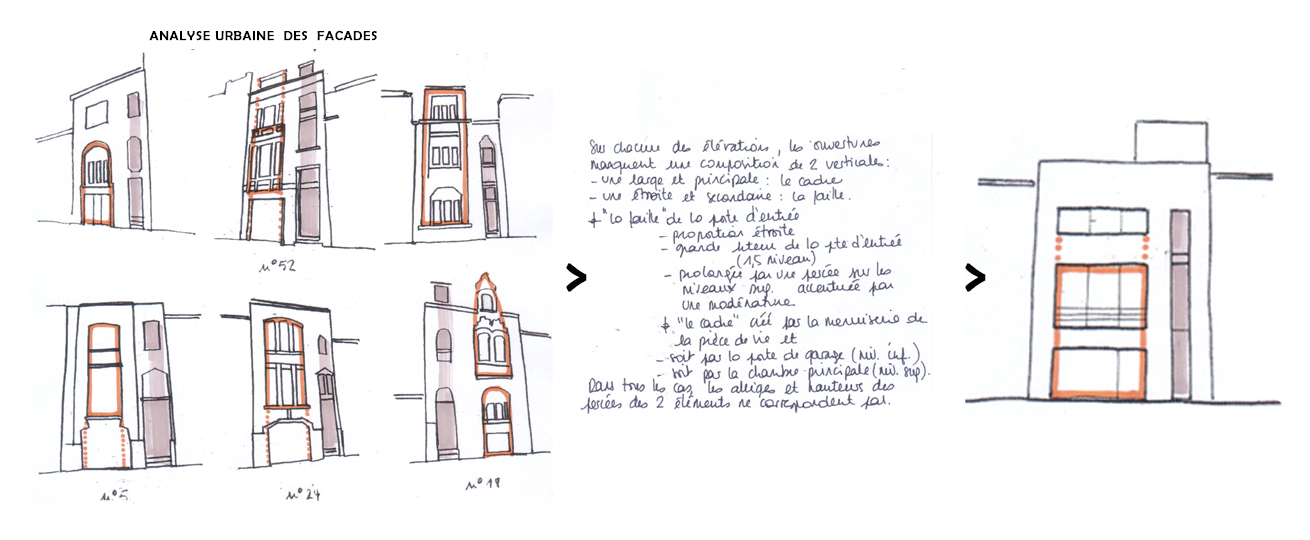 ANALYSE URBAINE DES FACADES
n°52
n°5
n°24
n°19
>
Sur chacune des élévations, les ouvertures
marquent une composition de 2 verticales:
- une large et principale : le cadre
- une étroite et secondaire : la faille.
"la faille" de la porte d'entrée
- proportion étroite
- grande hteur de la pte d'entrée
(1,5 niveau)
- prolongée par une percée sur les
niveaux sup. accentuée par
une modénature.
"le cadre" créé par la menuiserie de
la pièce de vie et
- soit par la porte de garage (niv. inf.)
- soit par la chambre principale (niv. sup).
Dans tous les cas, les allèges et hauteurs des
percées des 2 éléments ne correspondent pas.
>